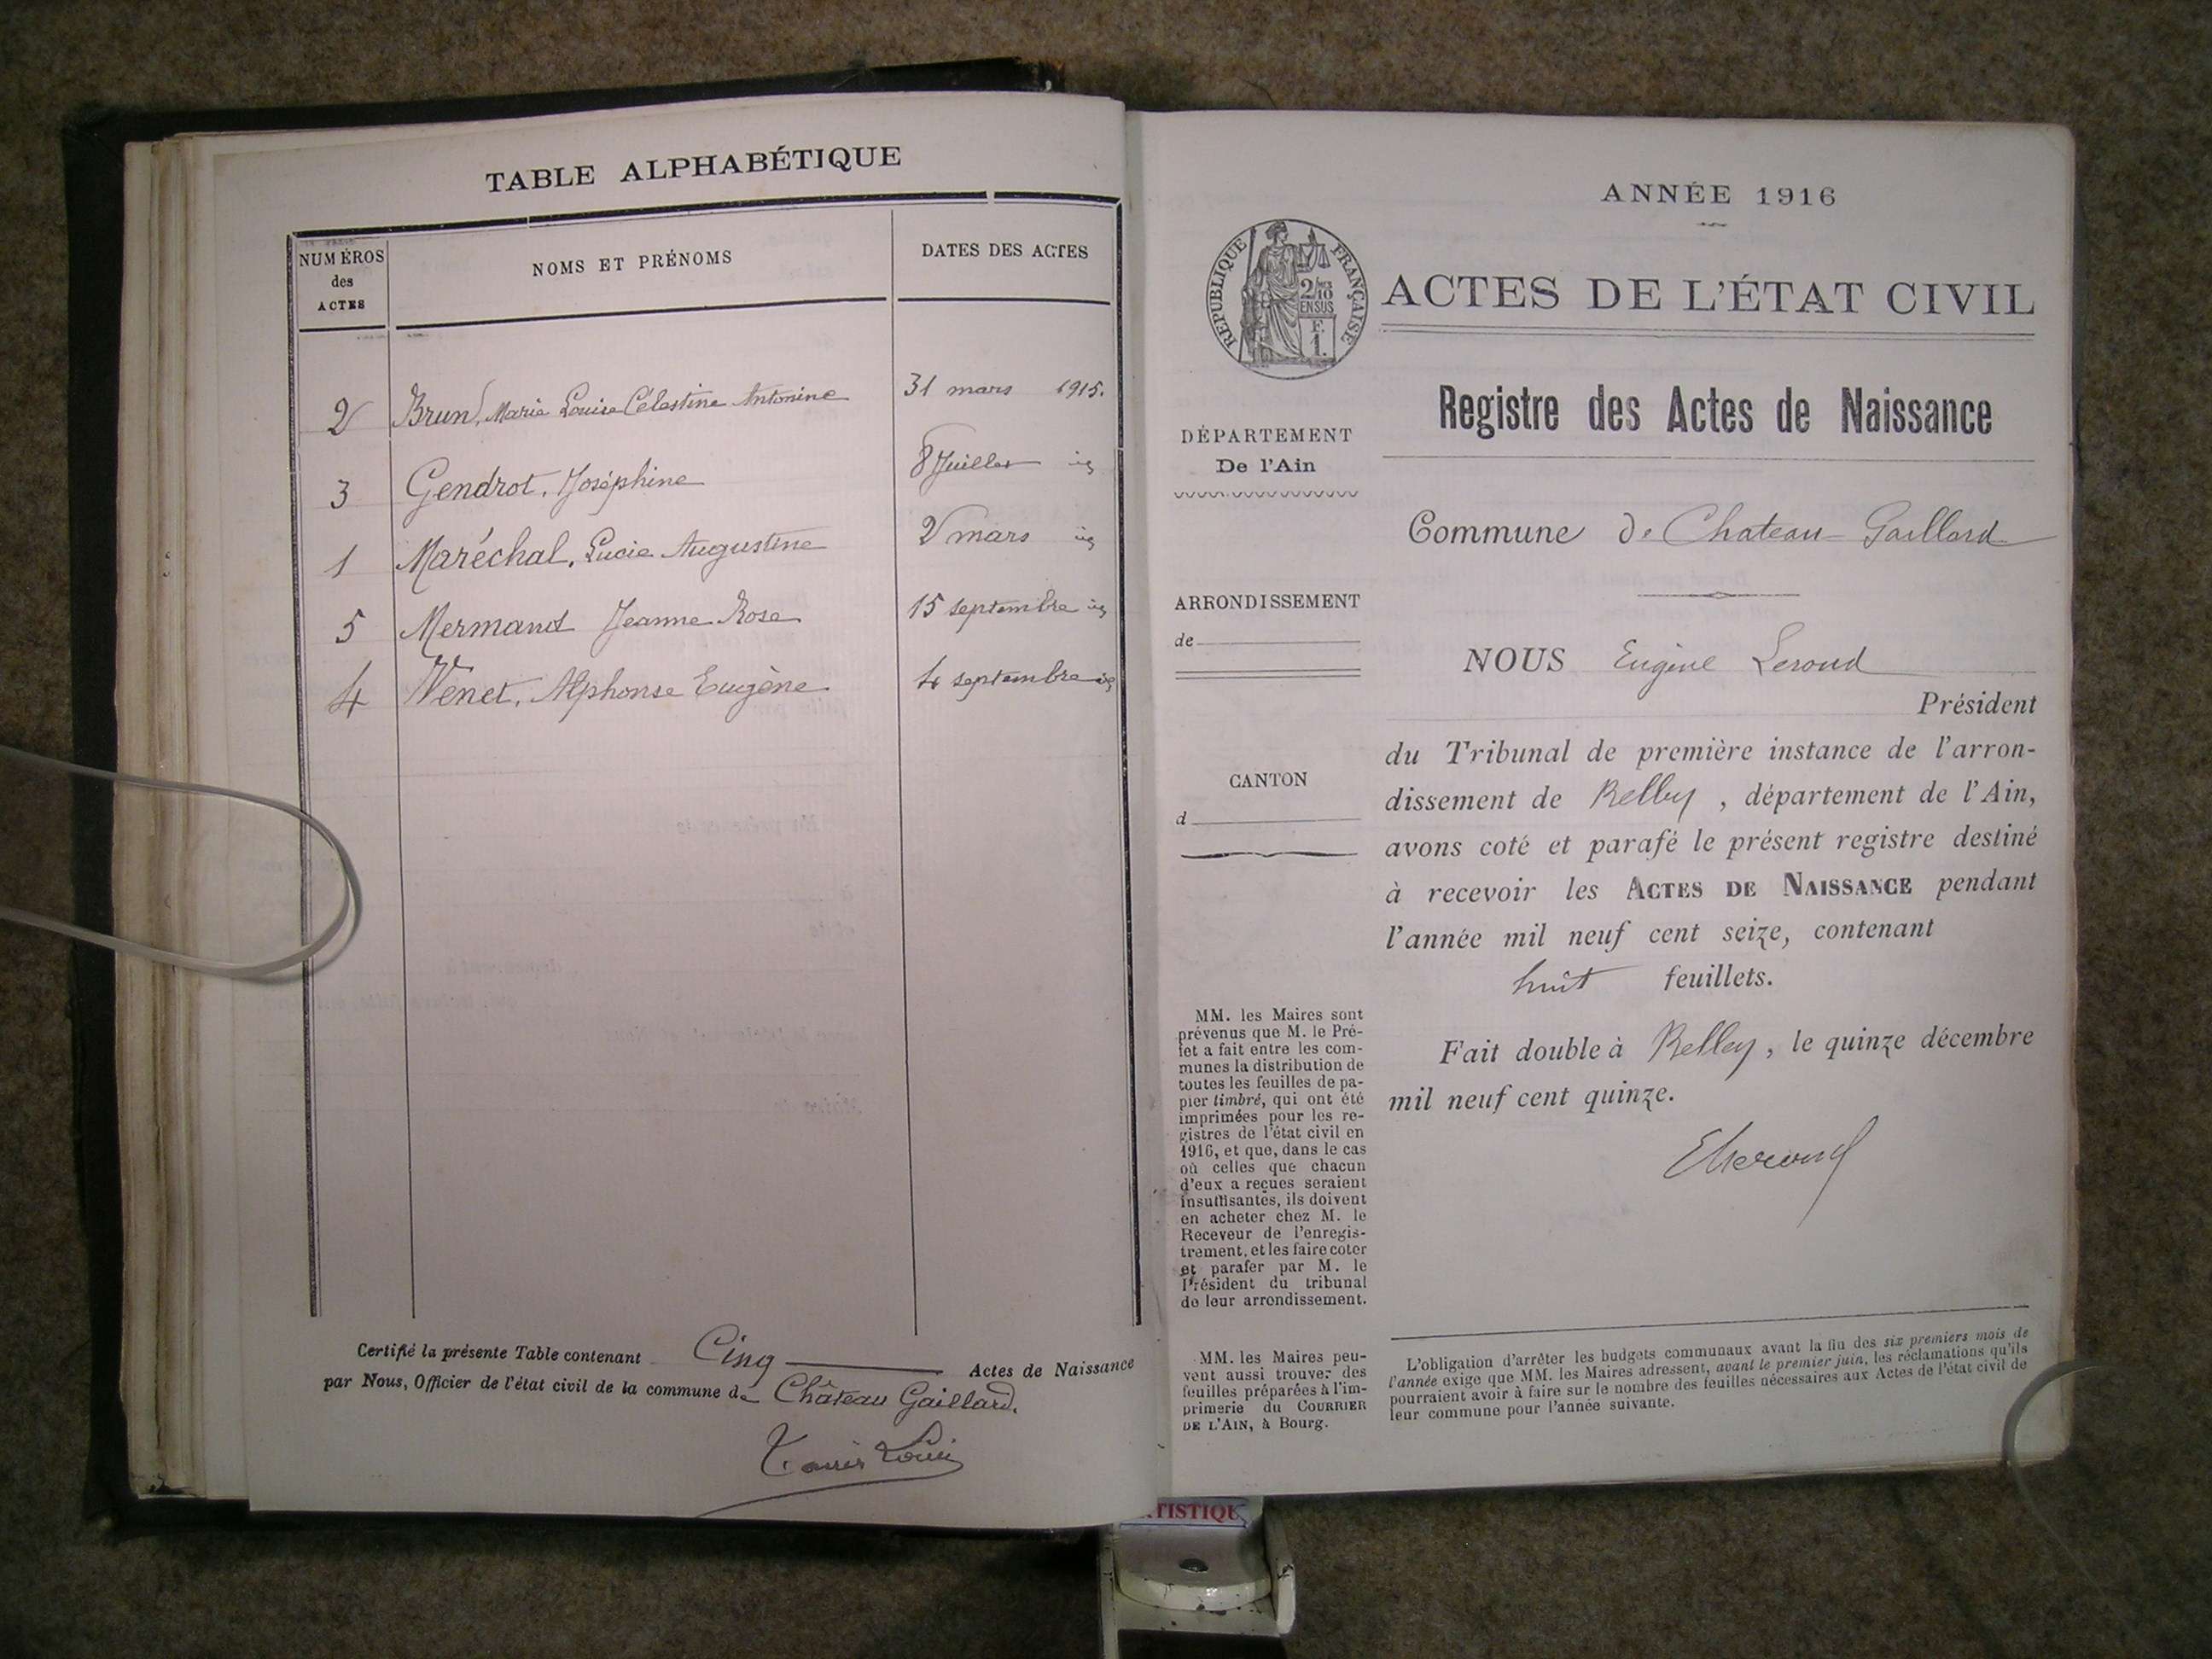 TABLE ALPHABÉTIQUE
NUMÉROS
des
ACTES
NOMS ET PRÉNOMS
DATES DES ACTES
2 Brun, Marie Louise Célestine Antonine 31 mars 1915.
3 Gendrot, Joséphine 8 Juillet
1 Maréchal, Lucie Augustine 2 mars
5 Mermand Jeanne Rose 15 septembre
4 Venet, Alphonse Eugène 4 septembre
Certifié la présente Table contenant Cinq Actes de Naissance
par Nous, Officier de l'état civil de la commune de Château Gaillard.
Louis
ANNÉE 1916
RÉPUBLIQUE FRANÇAISE
2/10
EN SUS
F.
1.
ACTES DE L'ÉTAT CIVIL
Registre des Actes de Naissance
DÉPARTEMENT
De l'Ain
Commune de Chateau-Gaillard
ARRONDISSEMENT
de
NOUS Eugène Leroud
Président
du Tribunal de première instance de l'arron-
dissement de Belley, département de l'Ain,
avons coté et parafé le présent registre destiné
à recevoir les ACTES DE NAISSANCE pendant
l'année mil neuf cent seize, contenant
huit feuillets.
Fait double à Belley, le quinze décembre
mil neuf cent quinze.
CANTON
d
MM. les Maires sont
prévenus que M. le Pré-
fet a fait entre les com-
munes la distribution de
toutes les feuilles de pa-
pier timbré, qui ont été
imprimées pour les re-
gistres de l'état civil en
1916, et que, dans le cas
où celles que chacun
d'eux a reçues seraient
insuffisantes, ils doivent
en acheter chez M. le
Receveur de l'enregis-
trement, et les faire coter
et parafer par M. le
Président du tribunal
de leur arrondissement.
MM. les Maires peu-
vent aussi trouver des
feuilles préparées à l'im-
primerie du COURRIER
DE L'AIN, à Bourg.
L'obligation d'arrêter les budgets communaux avant la fin des six premiers mois de
l'année exige que MM. les Maires adressent, avant le premier juin, les réclamations qu'ils
pourraient avoir à faire sur le nombre des feuilles nécessaires aux Actes de l'état civil de
leur commune pour l'année suivante.
TISTIQU